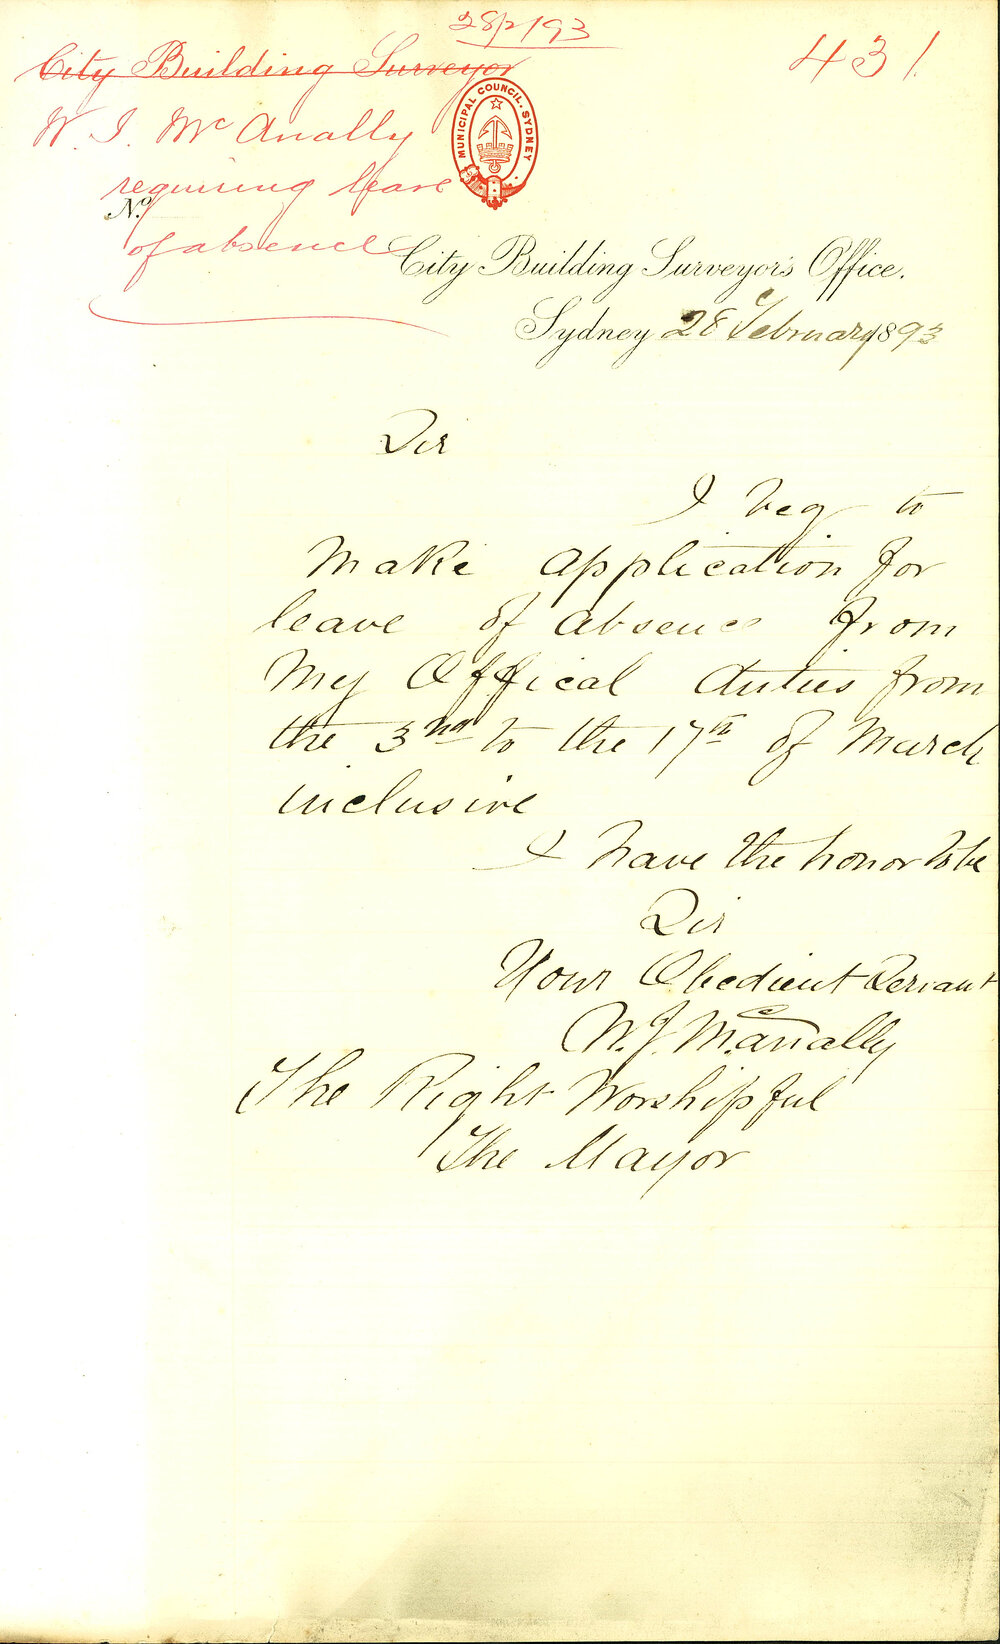 28/2/93
431
City Building Surveyor
W. J. McAnally
requiring leave
of absence
MUNICIPAL COUNCIL. SYDNEY
No.
City Building Surveyor's Office.
Sydney 28 February 1893
Sir
I beg to
Make application for
leave of absence from
My Offical duties from
the 3nd to the 17th of March
inclusive
I have the honor to be
Sir
Your Obedient Servant
W. J. McAnally
The Right Worshipful
The Mayor